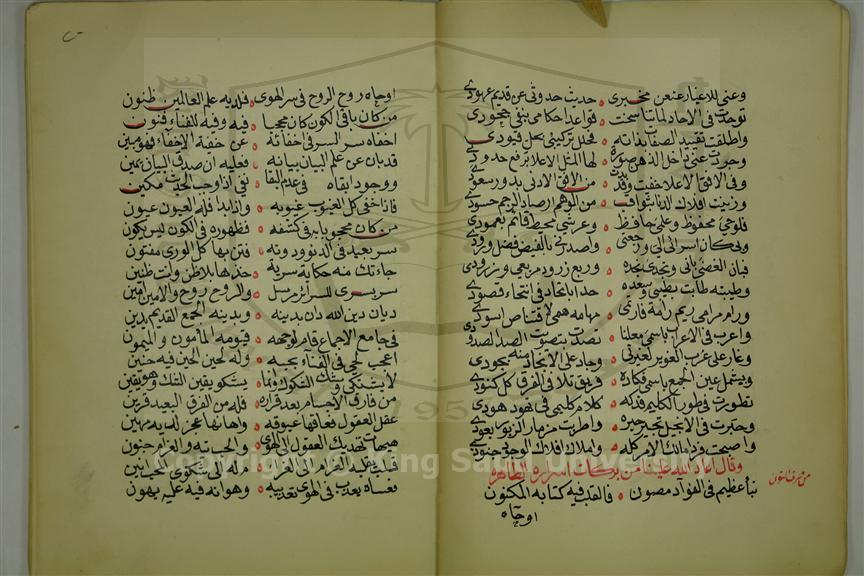 وعنى للاغيار عنعن مخبرى • حديث حدوثى عن قديم عهودى
توحدت فى الاحاد لما تناسخت • قواعد احكامى بنفى جحودى
واطلقت تقييد الصفات لذاته • فحل تركيبى بحل قيودى
وجردت عنى داخل الذهن صورة • لها المثل الاعلا برفع حدودى
وفى الافق الاعلا خفيت وقد بدت • من الافق الادنى بدور سعودى
وزينت افلاك الدنا بثواقب • من الوهم ارصاد لرجم حسودى
فلوحى محفوظ وعلى حافظ • وعرشى محيط قائم بعمودى
ولى كان اسرائى الى ورجعتى • واصدرنى بالفيض فضل ورودى
فبان الغضى بانى ونجدى نجده • وربع زرود مربعى وزرودى
وطيبته طابت بطيبى وسعده • حدا باتحاد فى انتحاء قصودى
ورام مرامى ريم رامة فارئ • مهامه همى لاقتناص اسودى
واعرب فى الاعراب باسمى معلنا • تصدت بتصويت الصدا لصدودى
وغار على غرب الغوير لغيرتى • وجاد على الانجاد منه بجودى
ويشمل عين الجمع باسمى فكاره • فريق تلا فى الفرق كل كنودى
تطورت فى طور الكليم فدكه • كلام كليمى فى عهود هودى
وحبرت فى الانجيل تحبير حبره • واطربت مزمار الزبور بعودى
واصبحت فردا مالك الامر كله • واملاك افلاك الوجود جنودى
وقال اعاد الله علينا من بركات اسراره الطاهره
من حرف النون
نبأ عظيم فى الفؤاد مصون • فالقلب فيه كتابه المكنون
اوحاه
اوحاه روح الروح فى سر الهوى • فلديه علم العالمين ظنون
من كان باقى الكون كان محجبا • فيه وفيه للفناء فنون
اخفاه سر السر فى اخفائه • عن خفية الاخفاء فهو مبين
قد بان عن علم البيان بيانه • فعليه ان صدق البيان يمين
ووجود ابقاه فى عدم البقا • نفى اذا وجب الحديث مكين
فاذا خفى كل الغيوب غيوبه • واذا بدا فله العيون عيون
من كان محجوبا به فى كشفه • فظهوره فى الكون ليس يكون
سر بعيد فى الدنو ودونه • فتن بها كل الورى مفتون
جاءتك منه حكاية سرية • خذها بلا ظن ولت ظنين
سر يسرى للسرائر مرسل • والروح روح والامين امين
ديان دين الله دان بدينه • وبدينه الجمع القديم يدين
فى جامع الاجماع قام لوجهه • قيومه المأمون والميمون
اعجب لحى فى الفناء بحبه • وله لحين الحين فيه حنين
لا يشتكى وبتلك الشكوك وانما • يشكو يقين الشك وهو يقين
من فارق الاجسام بعد قراره • فله من الفرق البعيد قرين
عقل العقول فعاقها عيوقه • واهانها عجز لديه مهين
هيهات تهديك العقول الى الهوى • والحب تيه والغرام جنون
قلبى عليه الغرام له الغرام • مله الى شكوى
نفساه يعذب فى الهوى تعذيبه • وهوانه فيه عليه يهون